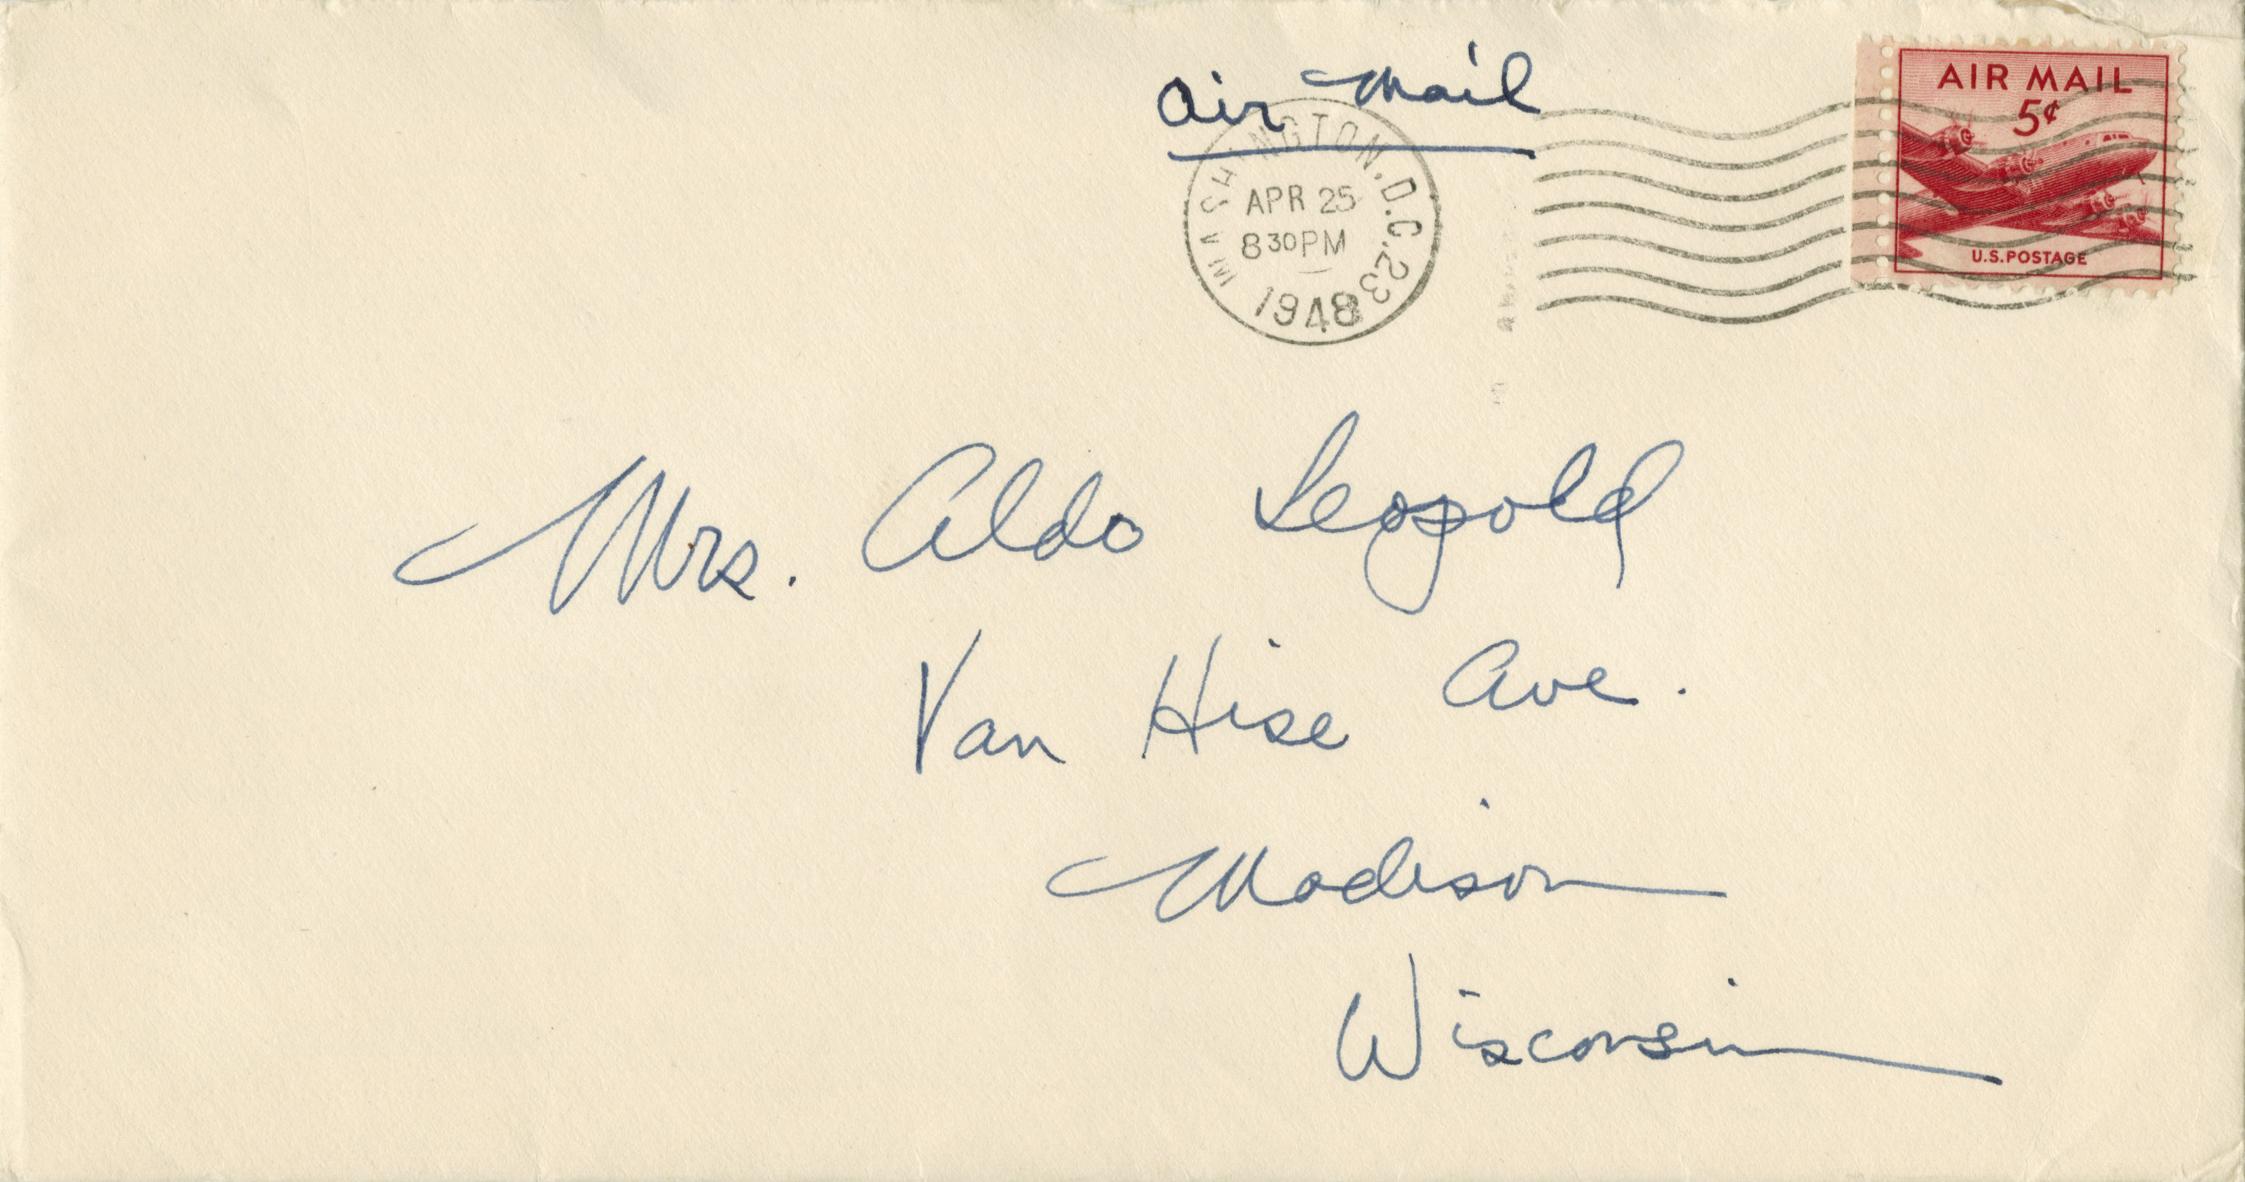 Air Mail
WASHINGTON, D.C. 23
APR 25
8 30 PM
1948
AIR MAIL
5¢
U.S. POSTAGE
Mrs. Aldo Leopold
Van Hise Ave.
Madison
Wisconsin